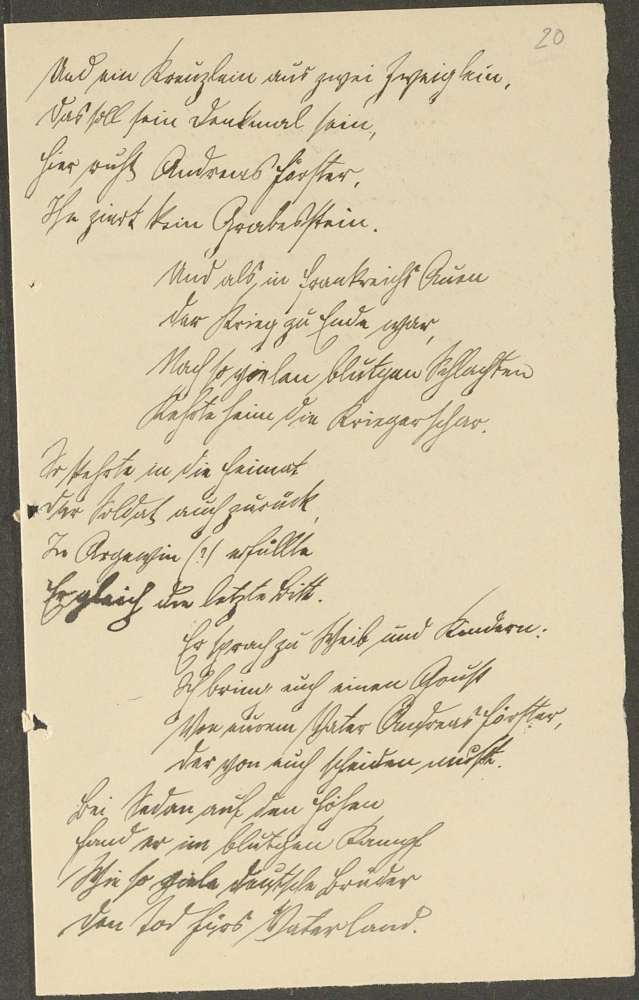 20
Und ein Kreuzlein aus zwei Zweiglein,
Das soll sein Denkmal sein,
Hier ruht Andreas Förster,
Ihn ziert kein Grabesstein.
Und als in Frankreichs Auen
Der Krieg zu Ende war,
Nach so vielen blutgen Schlachten
Kehrte heim die Kriegerschar.
So kehrte in die Heimat
Der Soldat auch zurück,
In (?) erfüllte
Er gleich die letzte Bitt.
Er sprach zu Weib und Kindern:
Ich bring euch einen Gruß
Von eurem Vater Andreas Förster,
Der von euch scheiden mußt.
Bei Sedan auf den Höhen
Fand er im blutgen Kampf
Wie so viele deutsche Brüder
Den Tod fürs Vaterland.